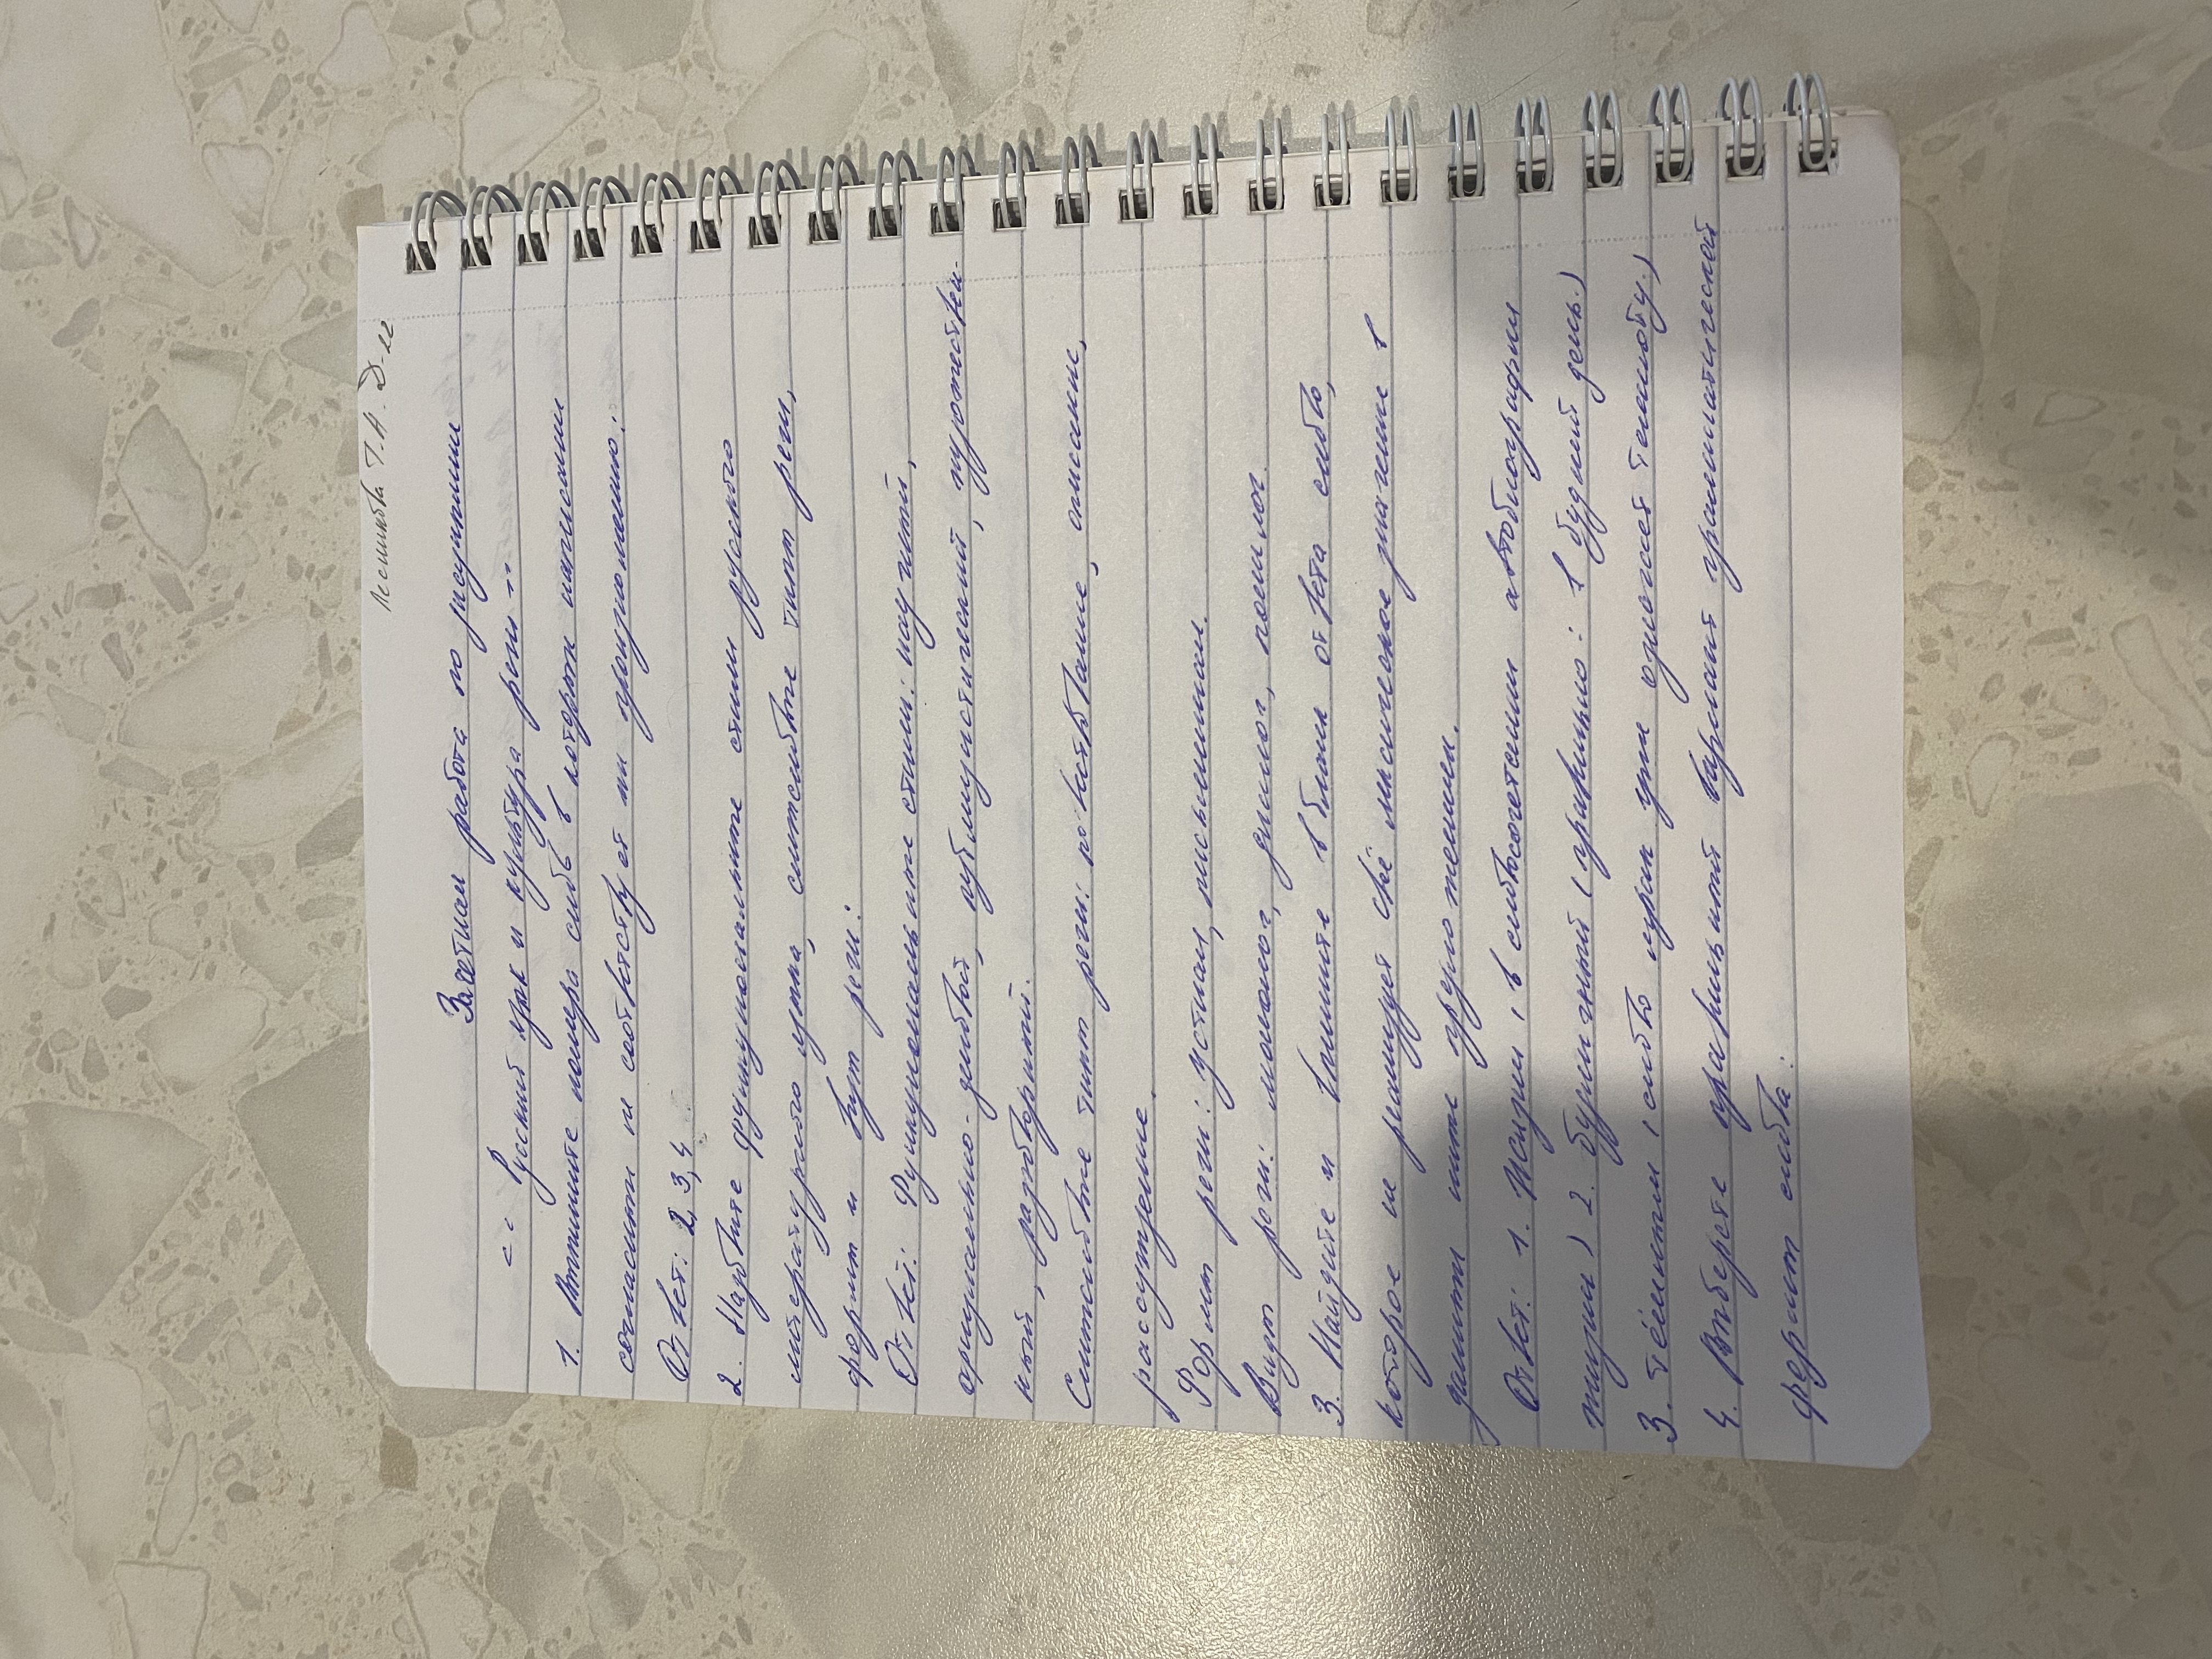 Т.А. Д-11
Зачетная работа по дисциплине
"Русский язык и культура речи"
1. Выпишите номера слов в которых написание
согласных не соответствует их произношению:
Ответ: 2, 3, 4
2. Назовите функциональные стили русского
литературного языка, смысловые типы речи,
формы и виды речи:
Ответ: Функциональные стили: научный,
официально-деловой, публицистический, художествен-
ный, разговорный.
Смысловые типы речи: повествование, описание,
рассуждение.
Формы речи: устная, письменная.
Виды речи: монолог, диалог, полилог.
3. Найдите и впишите в бланк ответа слово,
которое не реализует своё лексическое значение в
данных ниже предложениях.
Ответ: 1. Жизни (в словосочетании автобиография
жизни) 2. будничный (правильно: в будний день.)
3. тёмными (слово мрак уже означает темноту.)
4. Выберете правильный вариант грамматической
формы слова: